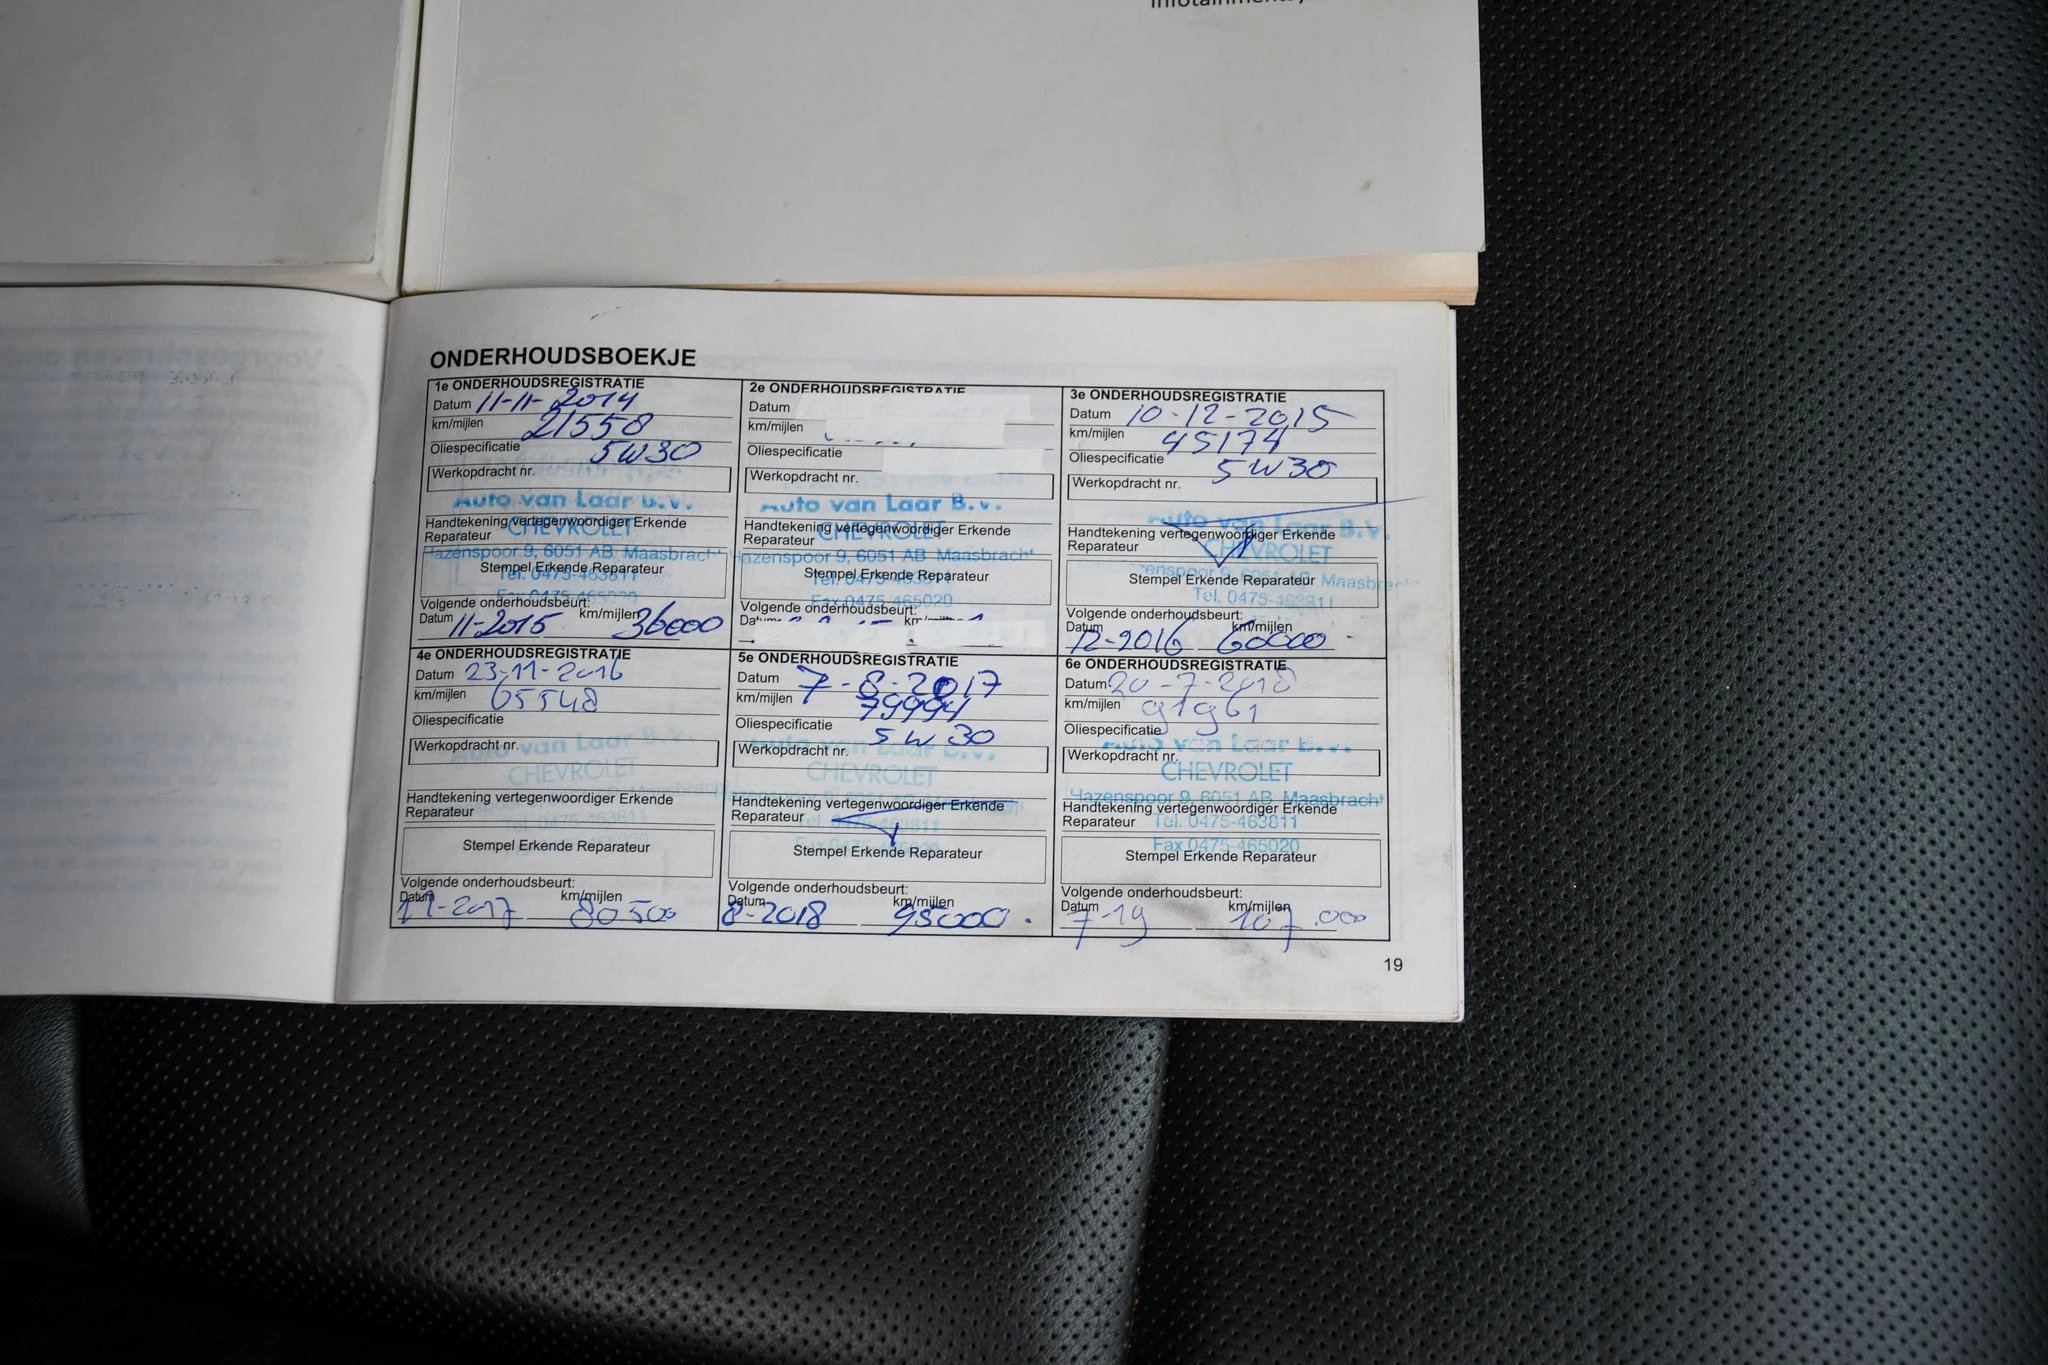 ONDERHOUDSBOEKJE
1e ONDERHOUDSREGISTRATIE
Datum 11-11-2014
km/mijlen 21558
Oliespecificatie 5W30
Werkopdracht nr.
Auto van Laar B.V.
CHEVROLET
Handtekening vertegenwoordiger Erkende
Reparateur
Hazenspoor 9, 6051 AB Maasbracht
Stempel Erkende Reparateur
Tel. 0475-463811
Fax 0475-465020
Volgende onderhoudsbeurt:
Datum 11-2015 km/mijlen 36000
2e ONDERHOUDSREGISTRATIE
Datum
km/mijlen
Oliespecificatie
Werkopdracht nr.
Auto van Laar B.V.
CHEVROLET
Handtekening vertegenwoordiger Erkende
Reparateur
Hazenspoor 9, 6051 AB Maasbracht
Stempel Erkende Reparateur
Tel. 0475-463811
Fax 0475-465020
Volgende onderhoudsbeurt:
Datum km/mijlen
3e ONDERHOUDSREGISTRATIE
Datum 10-12-2015
km/mijlen 45174
Oliespecificatie 5W30
Werkopdracht nr.
Auto van Laar B.V.
Handtekening vertegenwoordiger Erkende
Reparateur
CHEVROLET
Hazenspoor 9, 6051 AB Maasbracht
Stempel Erkende Reparateur
Tel. 0475-463811
Volgende onderhoudsbeurt:
Datum 12-2016 km/mijlen 60000
4e ONDERHOUDSREGISTRATIE
Datum 23-11-2016
km/mijlen 65548
Oliespecificatie
Auto van Laar B.V.
Werkopdracht nr.
CHEVROLET
Handtekening vertegenwoordiger Erkende
Reparateur
Tel. 0475-463811
Stempel Erkende Reparateur
Volgende onderhoudsbeurt:
Datum 11-2017 km/mijlen 80500
5e ONDERHOUDSREGISTRATIE
Datum 7-8-2017
km/mijlen 79994
Oliespecificatie 5W30
Auto van Laar B.V.
Werkopdracht nr.
CHEVROLET
Handtekening vertegenwoordiger Erkende
Reparateur
Tel. 0475-463811
Stempel Erkende Reparateur
Volgende onderhoudsbeurt:
Datum 8-2018 km/mijlen 95000
6e ONDERHOUDSREGISTRATIE
Datum 20-7-2018
km/mijlen 91961
Oliespecificatie
Auto van Laar B.V.
Werkopdracht nr.
CHEVROLET
Hazenspoor 9, 6051 AB Maasbracht
Handtekening vertegenwoordiger Erkende
Reparateur
Tel. 0475-463811
Fax 0475-465020
Stempel Erkende Reparateur
Volgende onderhoudsbeurt:
Datum 7-19 km/mijlen 107.000
19